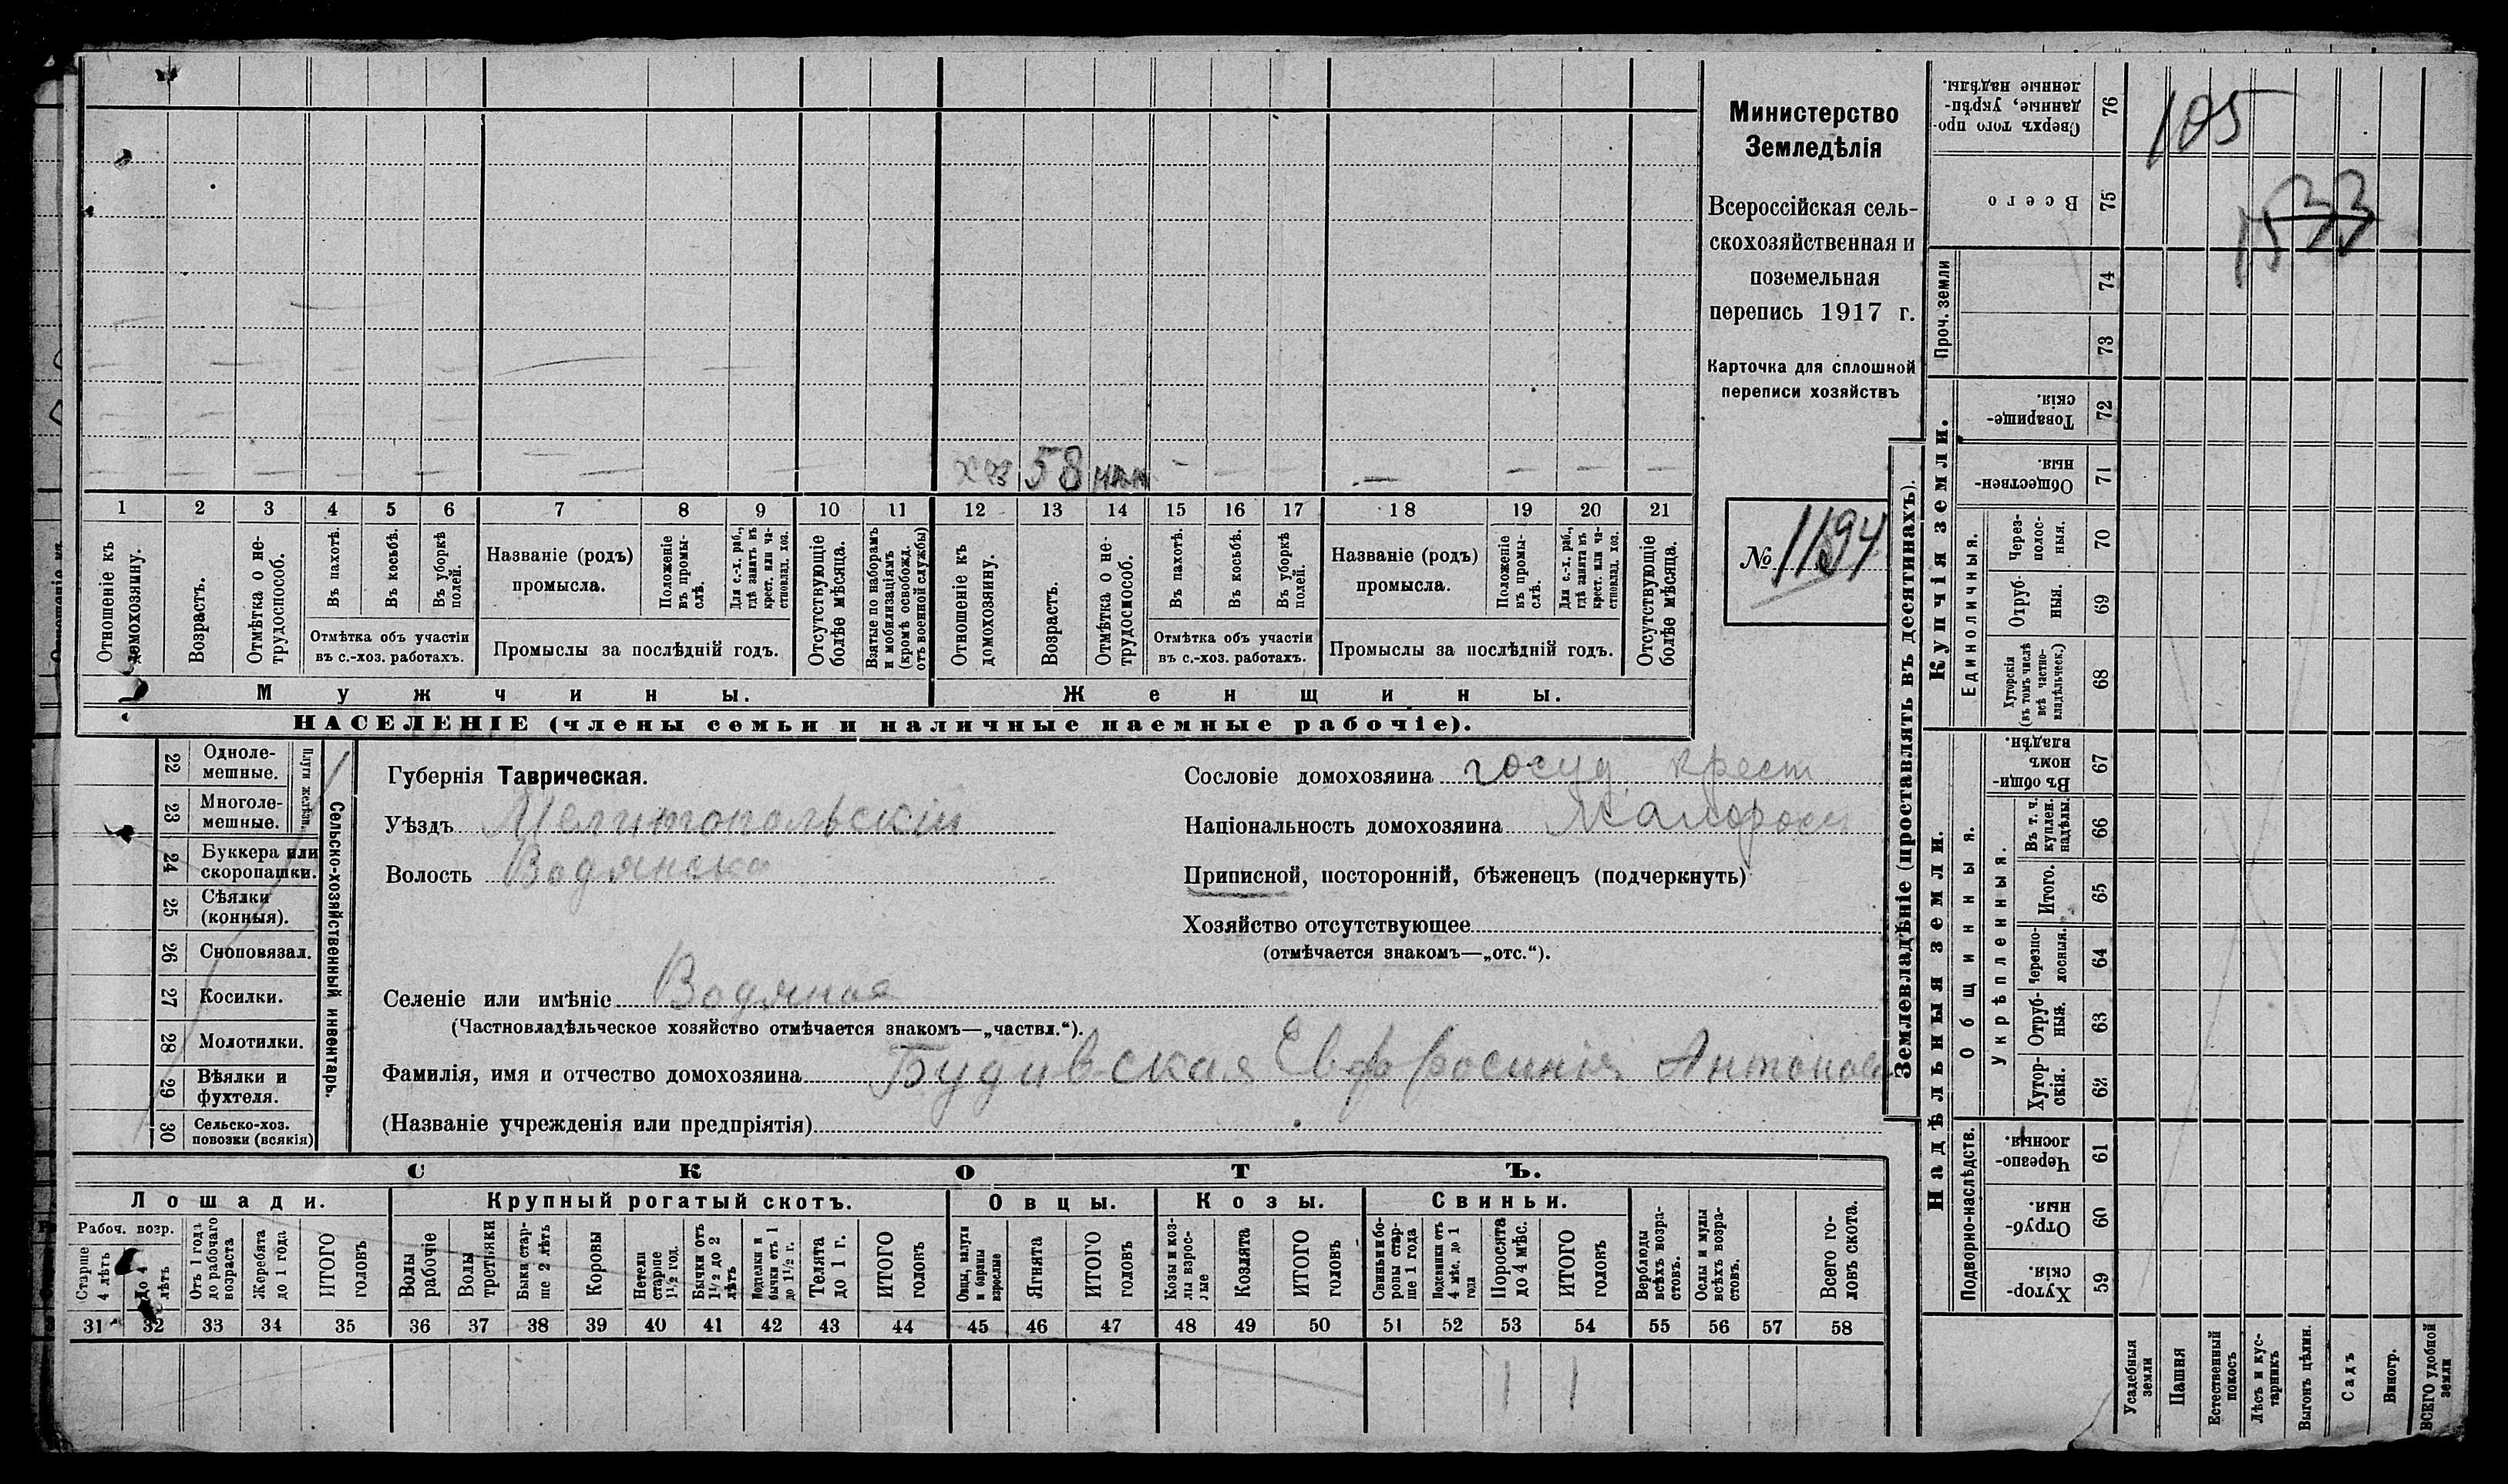 хоз 58 нтл - — — — — — —
1 2 3 4 5 6 7 8 9 10 11 12 13 14 15 16 17 18 19 20 21
Отношеніе къ домохозяину.
Возрастъ.
Отмѣтка о не-трудоспособ.
Въ пахотѣ.
Въ косьбѣ.
Въ уборкѣ полей.
Отмѣтка объ участіи
въ с.-хоз. работахъ.
Названіе (родъ)
промысла.
Положеніе въ промы-слѣ.
Для с.-х. раб., гдѣ занятъ въ крест. или ча-стновлад. хоз.
Промыслы за послѣдній годъ.
Отсутствующіе болѣе мѣсяца.
Взятые по наборамъ и мобилизаціямъ (кромѣ освобожд. отъ военной службы)
Отношеніе къ домохозяину.
Возрастъ.
Отмѣтка о не-трудоспособ.
Въ пахотѣ.
Въ косьбѣ.
Въ уборкѣ полей.
Отмѣтка объ участіи
въ с.-хоз. работахъ.
Названіе (родъ)
промысла.
Положеніе въ промы-слѣ.
Для с.-х. раб., гдѣ занята въ крест. или ча-стновлад. хоз.
Промыслы за послѣдній годъ.
Отсутствующіе болѣе мѣсяца.
Мужчины. Женщины.
НАСЕЛЕНІЕ (члены семьи и наличные наемные рабочіе).
Министерство
Земледѣлія
Всероссійская сель-
скохозяйственная и
поземельная
перепись 1917 г.
Карточка для сплошной
переписи хозяйствъ
№ 1194
22 Одноле-мешные.
23 Многоле-мешные.
Плуги желѣзн.
24 Буккера или скоропашки.
25 Сѣялки (конныя).
26 Сноповязал.
27 Косилки.
28 Молотилки.
29 Вѣялки и фухтеля.
30 Сельско-хоз. повозки (всякія)
Сельско-хозяйственный инвентарь.
Губернія Таврическая.
Уѣздъ Мелитопольскій
Волость Водянска
Селеніе или имѣніе Водяная
(Частновладѣльческое хозяйство отмѣчается знакомъ—„частвл.“).
Фамилія, имя и отчество домохозяина Будивская Евфросинія Антонов
(Названіе учрежденія или предпріятія)
Сословіе домохозяина госуд крест
Національность домохозяина Малоросс
Приписной, посторонній, бѣженецъ (подчеркнуть)
Хозяйство отсутствующее
(отмѣчается знакомъ—„отс.“).
СКОТЪ.
Лошади. Крупный рогатый скотъ. Овцы. Козы. Свиньи.
Рабоч. возр.
Старше 4 лѣтъ
До 4 лѣтъ
Отъ 1 года до рабочаго возраста
Жеребята до 1 года
ИТОГО головъ
Волы рабочіе
Волы третьяки
Быки стар-ше 2 лѣтъ
Коровы
Нетели старше 1½ год.
Бычки отъ 1½ до 2 лѣтъ
Подтелки и бычки отъ 1 до 1½ г.
Телята до 1 г.
ИТОГО головъ
Овцы, валухи и бараны взрослые
Ягнята
ИТОГО головъ
Козы и коз-лы взрос-лые
Козлята
ИТОГО головъ
Свиньи и бо-ровы стар-ше 1 года
Подсвинки отъ 4 мѣс. до 1 года
Поросята до 4 мѣс.
ИТОГО головъ
Верблюды всѣхъ возра-стовъ.
Ослы и мулы всѣхъ возра-стовъ.
Всего го-ловъ скота.
31 32 33 34 35 36 37 38 39 40 41 42 43 44 45 46 47 48 49 50 51 52 53 54 55 56 57 58
1 1
Землевладѣніе (проставлять въ десятинахъ).
Сверхъ того про-данные, укрѣп-ленные надѣлы. 76
105
Всего 75
1533
Проч. земли
74
73
Купчія земли.
Товарище-скія. 72
Обществен-ныя. 71
Единоличныя.
Через-полос-ныя. 70
Отруб-ныя. 69
Хуторскія (въ томъ числѣ всѣ частно-владѣльческ.) 68
Надѣльныя земли.
Общинныя.
Въ общи-номъ владѣн. 67
Укрѣпленныя.
Въ т. ч. куплен. надѣлы. 66
Итого. 65
Черезпо-лосныя. 64
Отруб-ныя. 63
Хутор-скія. 62
Подворно-наслѣдств.
Черезпо-лосныя. 61
Отруб-ныя. 60
Хутор-скія. 59
Усадебныя земли
Пашня
Естественный покосъ
Лѣсъ и кус-тарникъ
Выгонъ цѣлин.
Садъ
Виногр.
ВСЕГО удобной земли